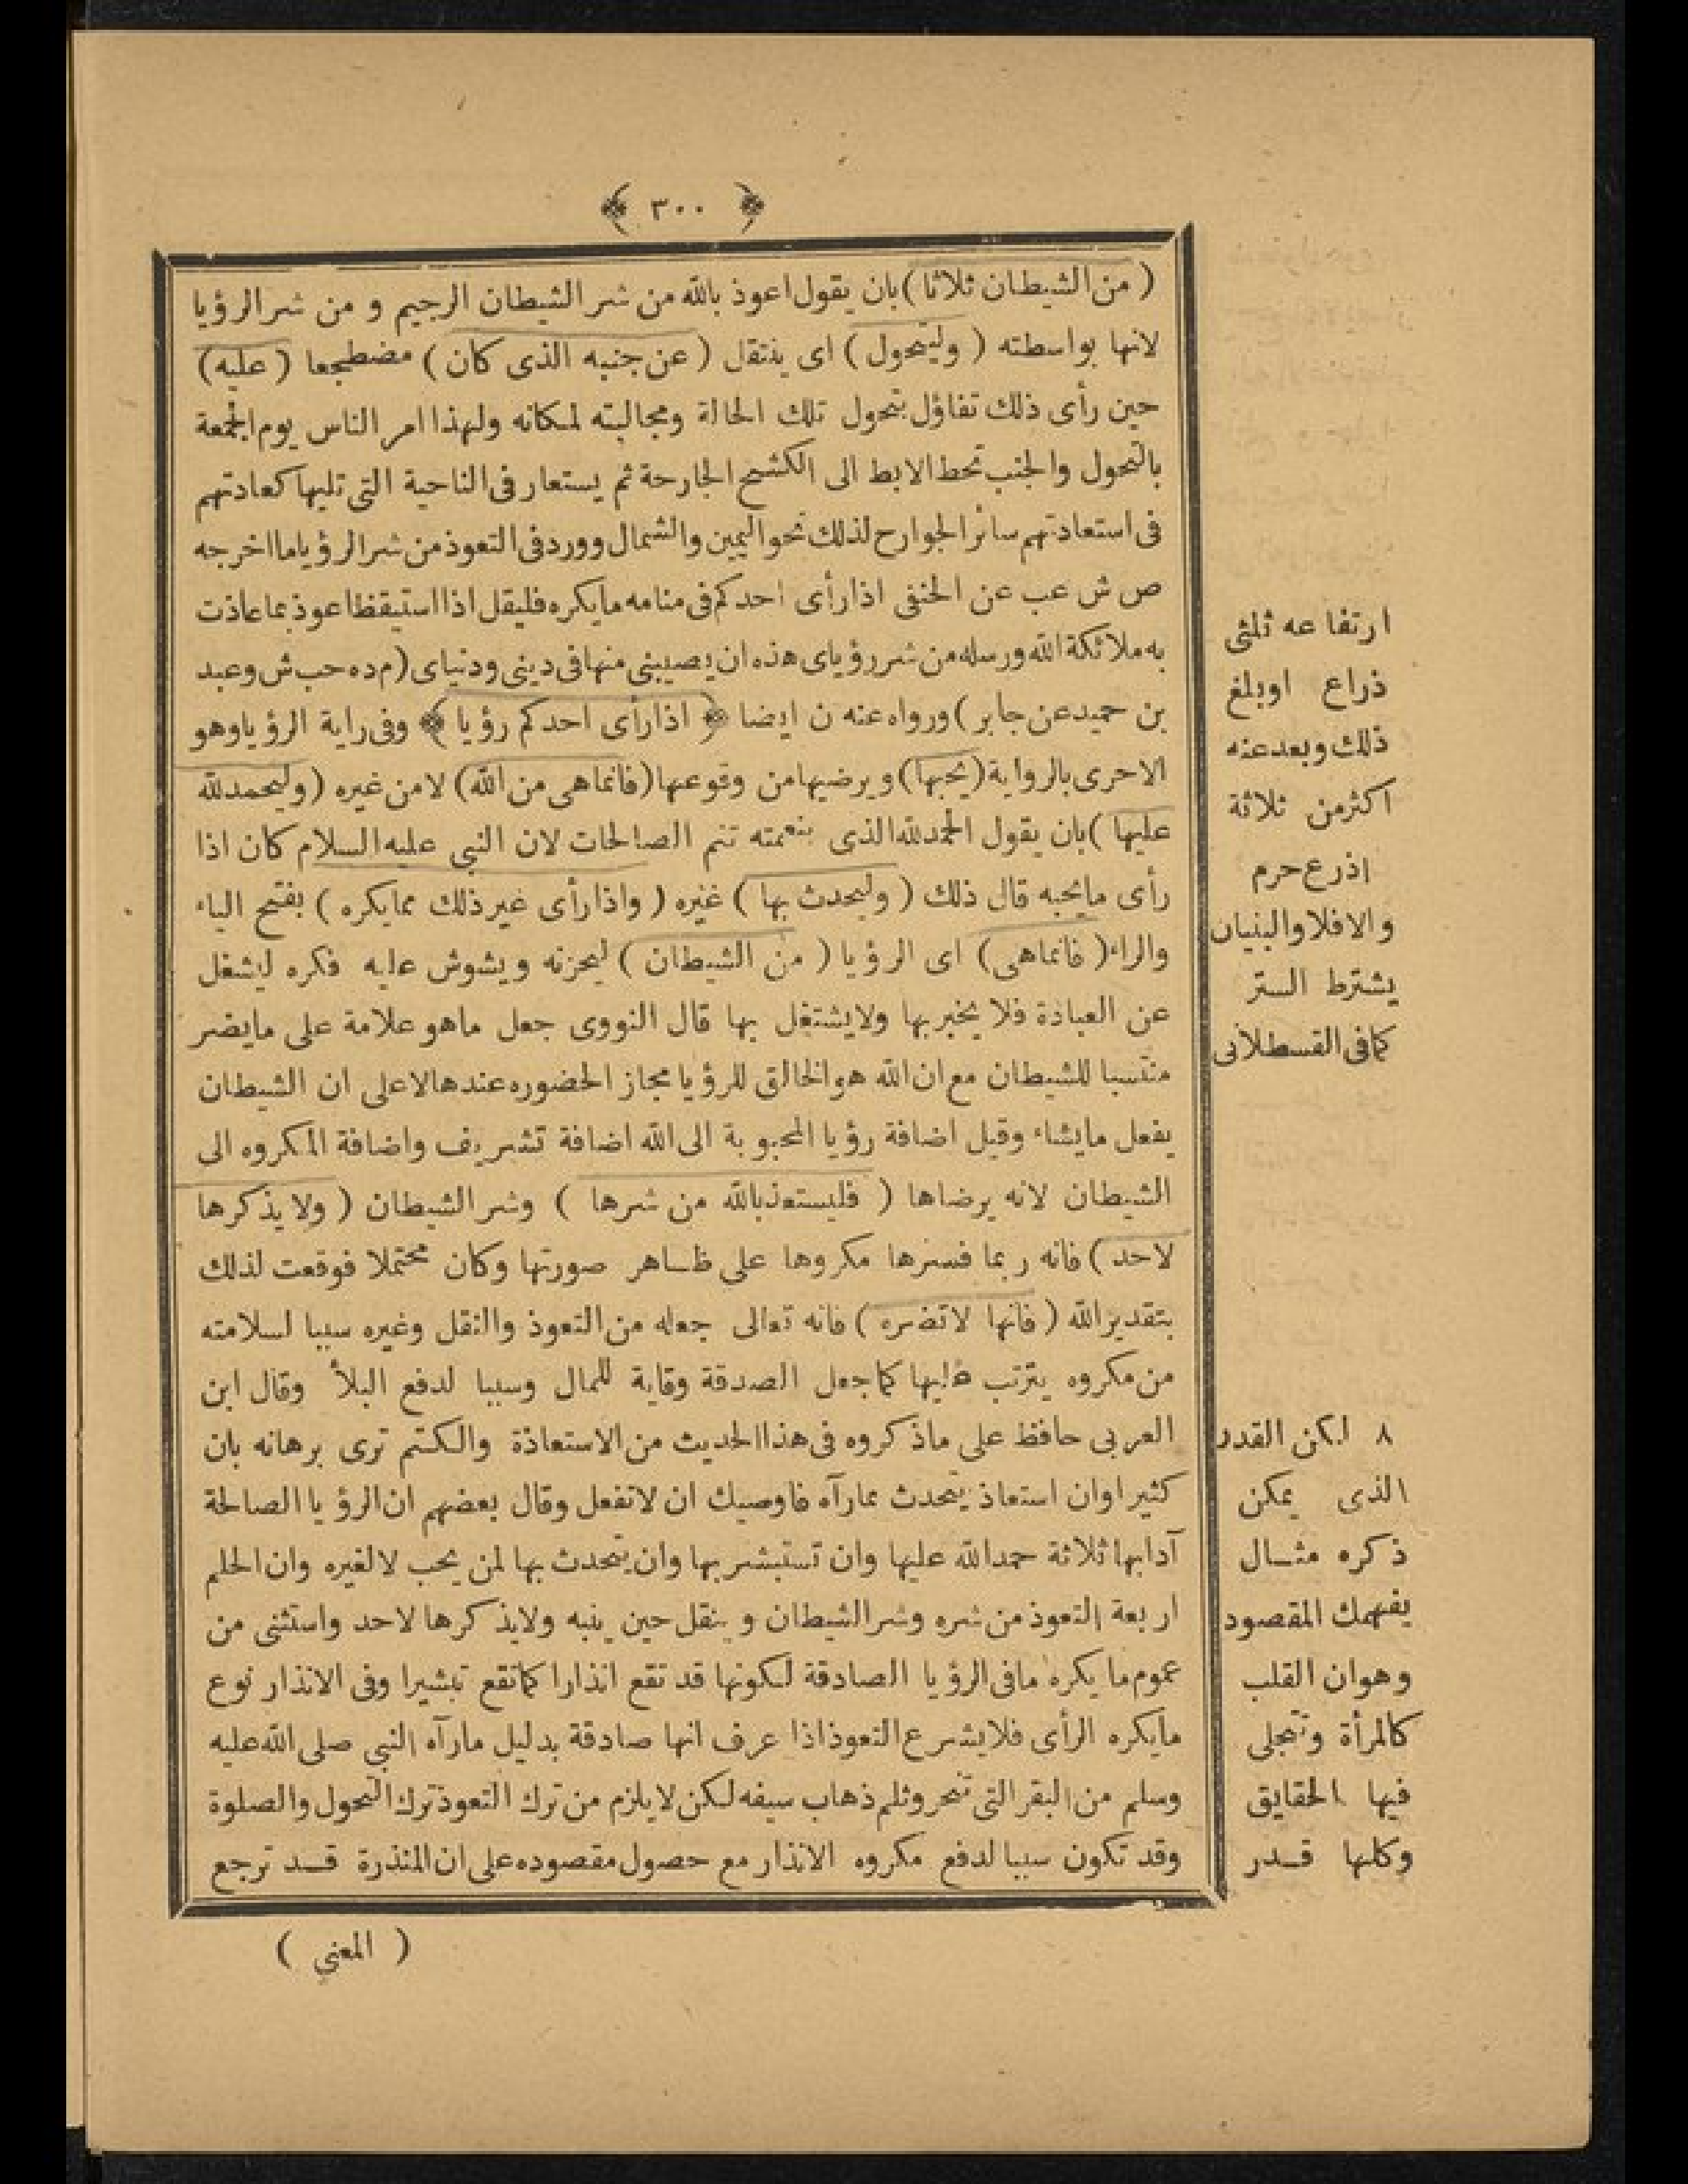 ﴿ ٣٠٠ ﴾
( من الشيطان ثلاثا ) بان يقول اعوذ بالله من شر الشيطان الرجيم و من شر الرؤيا
لانها بواسطته ( وليتحول ) اى ينتقل ( عن جنبه الذى كان ) مضطجعا ( عليه )
حين رأى ذلك تفاؤل بتحول تلك الحالة ومجالبته لمكانه ولهذا امر الناس يوم الجمعة
بالتحول والجنب تحط الابط الى الكشح الجارحة ثم يستعار فى الناحية التى تليها كعادتهم
فى استعادتهم سائر الجوارح لذلك نحو اليمين والشمال وورد فى التعوذ من شر الرؤيا ما اخرجه
ص ش عب عن الخنفى اذا رأى احدكم فى منامه ما يكره فليقل اذا استيقظ اعوذ بما عاذت
به ملائكة الله ورسله من شر رؤياى هذه ان يصيبنى منها فى دينى ودنياى ( م ده حب ش وعبد
بن حميد عن جابر ) ورواه عنه ن ايضا ﴿ اذا رأى احدكم رؤيا ﴾ وفى راية الرؤيا وهو
الاحرى بالرواية ( يحبها ) ويرضيها من وقوعها ( فانما هى من الله ) لا من غيره ( وليحمد لله
عليها ) بان يقول الحمد لله الذى بنعمته تتم الصالحات لان النبى عليه السلام كان اذا
رأى ما يحبه قال ذلك ( وليحدث بها ) غيره ( واذا رأى غير ذلك مما يكره ) بفتح الياء
والراء ( فانما هى ) اى الرؤيا ( من الشيطان ) ليحزنه ويشوش عليه فكره ليشغل
عن العبادة فلا يخبر بها ولا يشتغل بها قال النووى جعل ما هو علامة على ما يضر
منتسبا للشيطان مع ان الله هو الخالق للرؤيا مجاز الحضوره عندها لا على ان الشيطان
يفعل ما يشاء وقيل اضافة رؤيا المحبوبة الى الله اضافة تشريف واضافة المكروه الى
الشيطان لانه يرضاها ( فليستعذ بالله من شرها ) وشر الشيطان ( ولا يذكرها
لاحد ) فانه ربما فسرها مكروها على ظاهر صورتها وكان محتملا فوقعت لذلك
بتقدير الله ( فانها لا تضره ) فانه تعالى جعله من التعوذ والنقل وغيره سببا لسلامته
من مكروه يترتب عليها كما جعل الصدقة وقاية للمال وسببا لدفع البلأ وقال ابن
العربى حافظ على ما ذكروه فى هذا الحديث من الاستعاذة والكتم ترى برهانه بان
كثيرا وان استعاذ يتحدث بما رآه فاوصيك ان لا تفعل وقال بعضهم ان الرؤيا الصالحة
آدابها ثلاثة حمد الله عليها وان تستبشر بها وان يتحدث بها لمن يحب لا لغيره وان الحلم
اربعة التعوذ من شره وشر الشيطان وينقل حين ينبه ولا يذكرها لاحد واستثنى من
عموم ما يكره ما فى الرؤيا الصادقة لكونها قد تقع انذارا كما تقع تبشيرا وفى الانذار نوع
ما يكره الرأى فلا يشرع التعوذ اذا عرف انها صادقة بدليل ما رآه النبى صلى الله عليه
وسلم من البقر التى تنحر وثلم ذهاب سيفه لكن لا يلزم من ترك التعوذ ترك التحول والصلوة
وقد تكون سببا لدفع مكروه الانذار مع حصول مقصوده على ان المنذرة قد ترجع
( المعنى )
ارتفاعه ثلثى
ذراع اويلغ
ذلك وبعد عنه
اكثر من ثلاثة
اذرع حرم
والا فلا والبنيان
يشترط الستر
كما فى القسطلانى
٨ لكن القدر
الذى يمكن
ذكره مثال
يفهمك المقصود
وهو ان القلب
كالمرأة وتتجلى
فيها الحقايق
وكلها قدر